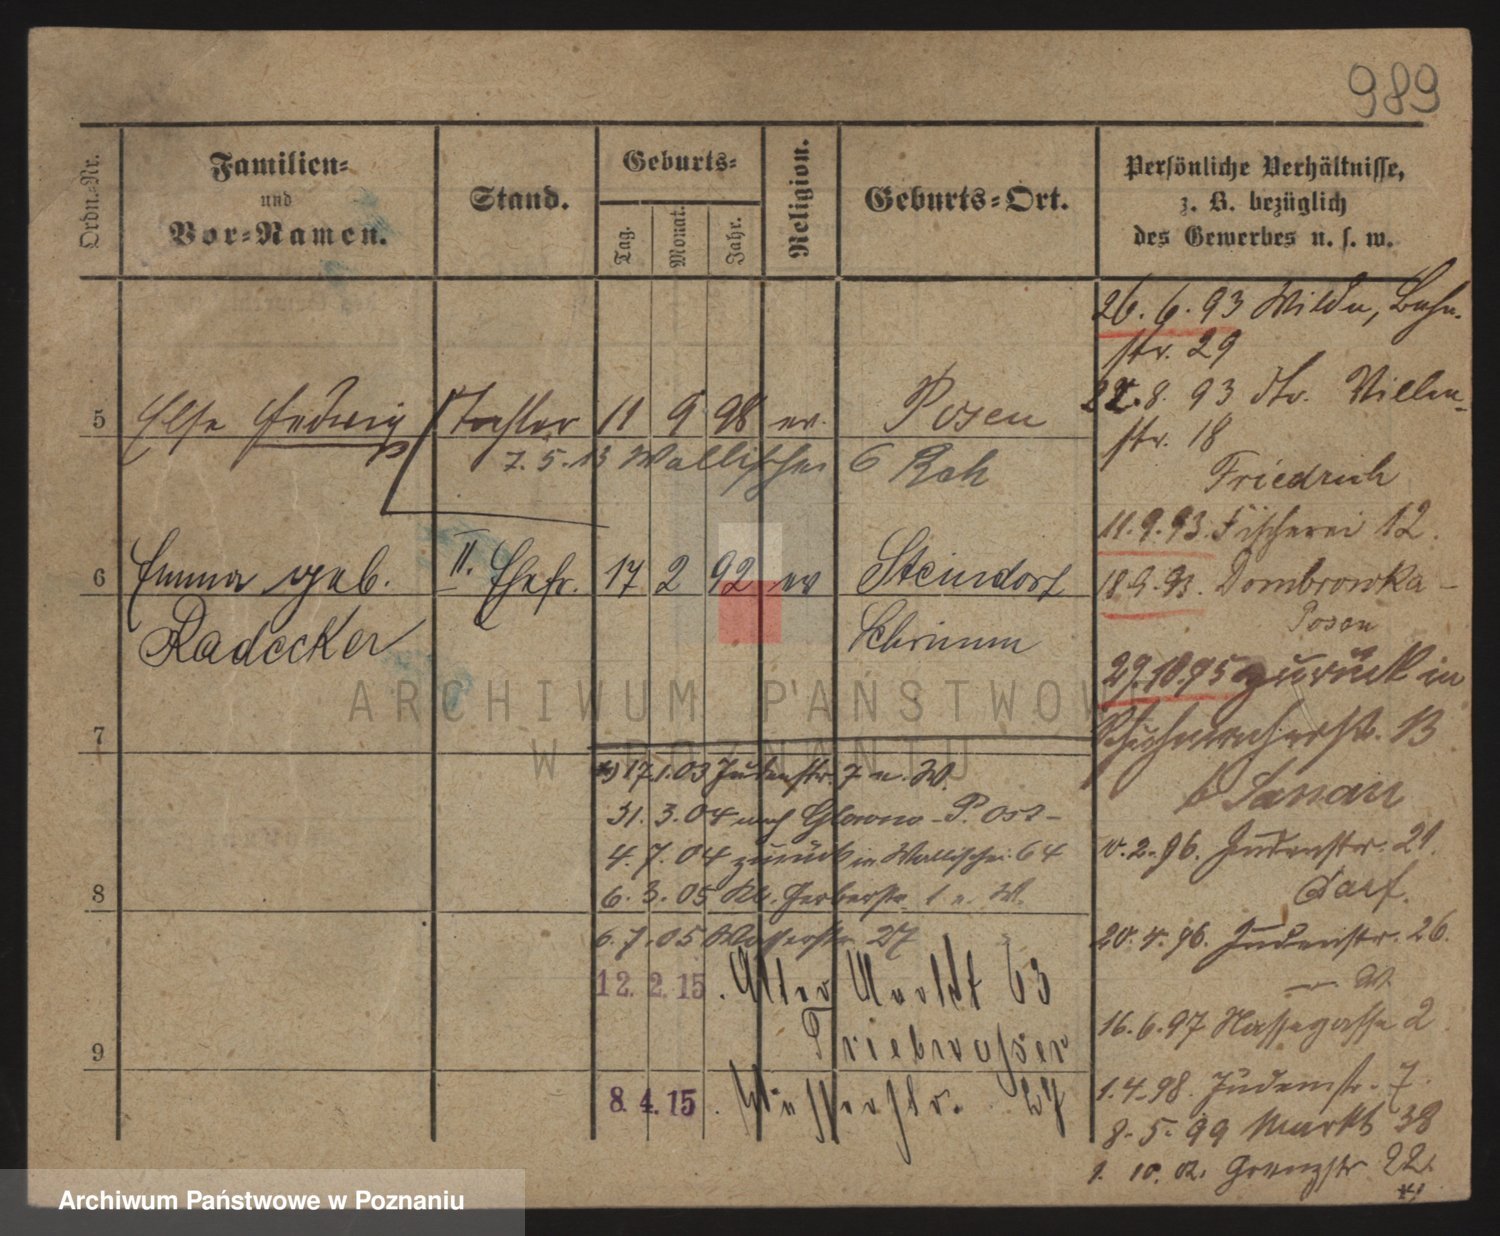 989
Ordn.-Nr.
Familien-
und
Vor-Namen.
Stand.
Geburts-
Tag.
Monat.
Jahr.
Religion.
Geburts-Ort.
Persönliche Verhältnisse,
z. B. bezüglich
des Gewerbes u. s. w.
5 Else Hedwig Tochter 11 9 98 ev. Posen
7. 5. 13 Wallischei 6 Rch
6 Emma geb. II. Ehefr. 17 2 92 ev Steindorf
Radecker Schrimm
7
8
9
26. 6. 93 Wilda, Bahn-
str. 29
8. 93 Villen-
str. 18
Friedrich
11. 9. 93. Fischerei 12.
18. 9. 93. Dombrowka-
Posen
29. 10. 95 zurück in
Schuhmacherstr. 13
2. 96. Judenstr. 21.
20. 4. 96. Judenstr. 26.
W.
16. 6. 97 Nassegasse 2
1. 4. 98. Judenstr. 7.
8. 5. 99 Markt 38
1. 10. 02. Grenzstr 22.
*)
*) 17.1.03 Judenstr. 7 n. W.
31. 3. 04 nach Glowno - P. Ost-
4. 7. 04 zurück in Wallischei 64
6. 3. 05 Kl. Gerberstr 1 n. W.
6. 7. 05 Wasserstr. 27
12. 2. 15. Alter Markt 63
8. 4. 15. Wasserstr. 27
ARCHIWUM PAŃSTWOW
W POZNANIU
Archiwum Państwowe w Poznaniu